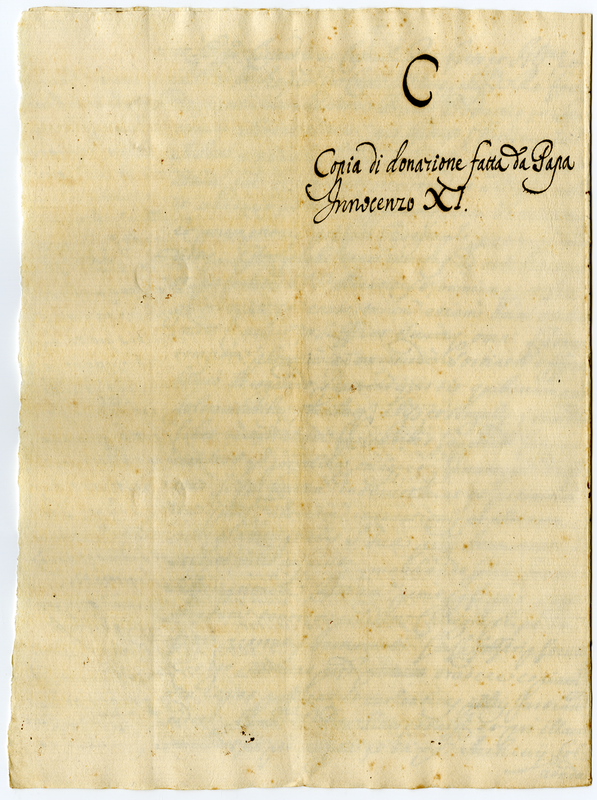 C
Copia di donazione fatta da Papa
Innocenzo XI.